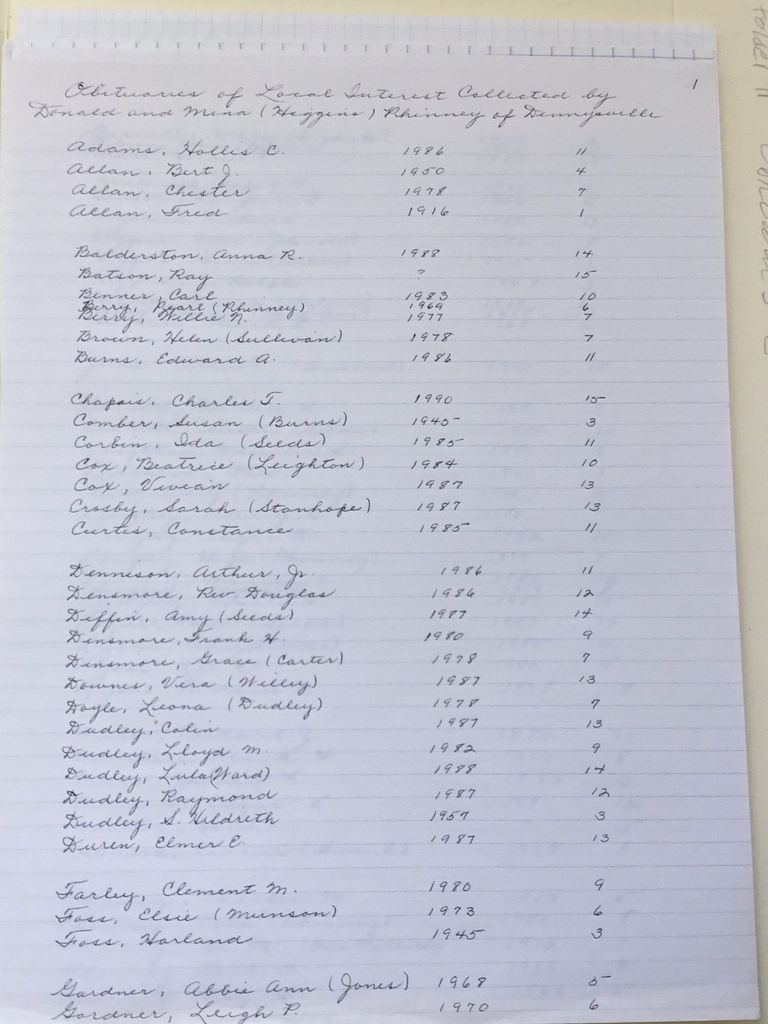 1
Obituaries of Local Interest Collected by
Donald and Mina (Higgins) Rhinney of Dennysville
Adams, Hollis C. 1986 11
Allan, Bert J. 1950 4
Allan, Chester 1978 7
Allan, Fred 1916 1
Balderston, Anna R. 1988 14
Batson, Ray ? 15
Benner, Carl 1983 10
Berry, Pearl (Rhinney) 1969 6
Berry, Willie N. 1977 7
Brown, Helen (Sullivan) 1978 7
Burns, Edward A. 1986 11
Chapais, Charles T. 1990 15
Comber, Susan (Burns) 1945 3
Corbin, Ida (Seeds) 1985 11
Cox, Beatrice (Leighton) 1984 10
Cox, Vivian 1987 13
Crosby, Sarah (Stanhope) 1987 13
Curtis, Constance 1985 11
Dennison, Arthur, Jr. 1986 11
Densmore, Rev Douglas 1986 12
Diffin, Amy (Seeds) 1987 14
Dinsmore, Frank H. 1980 9
Dinsmore, Grace (Carter) 1978 7
Downes, Vera (Willey) 1987 13
Doyle, Leona (Dudley) 1978 7
Dudley, Colin 1987 13
Dudley, Lloyd M. 1982 9
Dudley, Lula (Ward) 1988 14
Dudley, Raymond 1987 12
Dudley, S. Hildreth 1957 3
Duren, Elmer E. 1987 13
Farley, Clement M. 1980 9
Foss, Elsie (Munson) 1973 6
Foss, Harland 1945 3
Gardner, Abbie Ann (Jones) 1968 5
Gardner, Leigh P. 1970 6